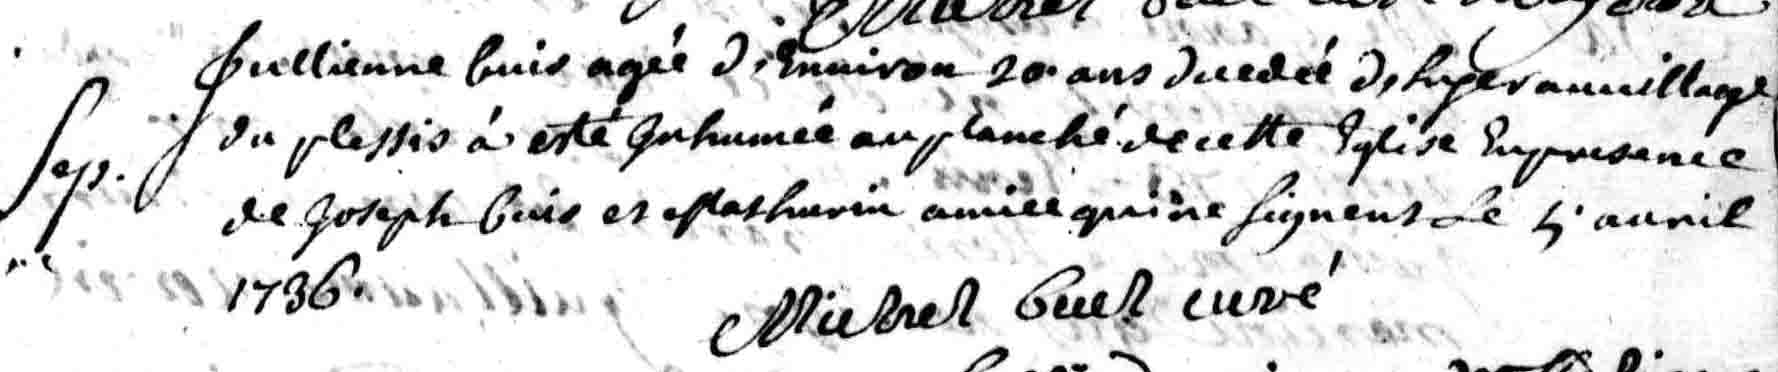 Jullienne buis agéé d'Environ 20 ans decedéé d'hyer au village
Sep. du plessis à esté Inhuméé au planché de cette Eglise En presence
de Joseph buis et Mathurin amicé qui ne signent Le 5 avril
1736.
Michel buel curé